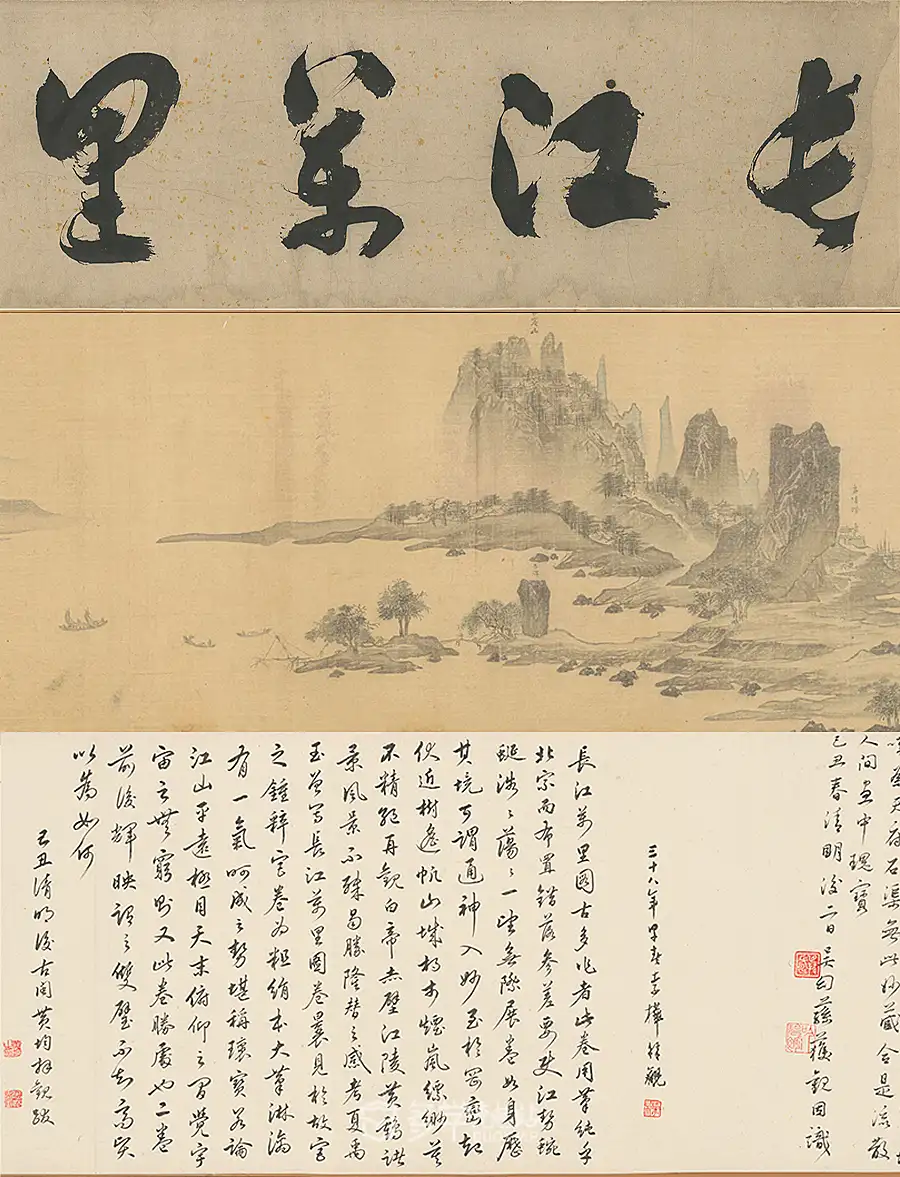 長江萬里
天府石渠無此妙藏合是流散
人間畫中瑰寶
己丑春清明後二日吳曰蓀獲觀因識
三十八年早春李拜觀
長江萬里圖古多作者此卷用筆純乎
北宗而布置錯落參差要使江勢蜿
蜒浩浩蕩蕩一望無際展卷如身歷
其境可謂通神入妙至於岡巒起
伏近樹遙帆山城村市煙嵐縹緲莫
不精絕再觀白帝赤壁江陵黃鶴諸
景風景不殊曷勝隆替之感考夏禹
玉曾寫長江萬里圖卷曩見於故宮
之鍾粹宮卷為粗絹本大筆淋漓
有一氣呵成之勢堪稱瓌寶若論
江山平遠極目天末俯仰之間覺宇
宙之無窮則又此卷勝處也二卷
前後輝映謂之雙璧不知高賢
以為如何
己丑清明後古閏黃均拜觀跋